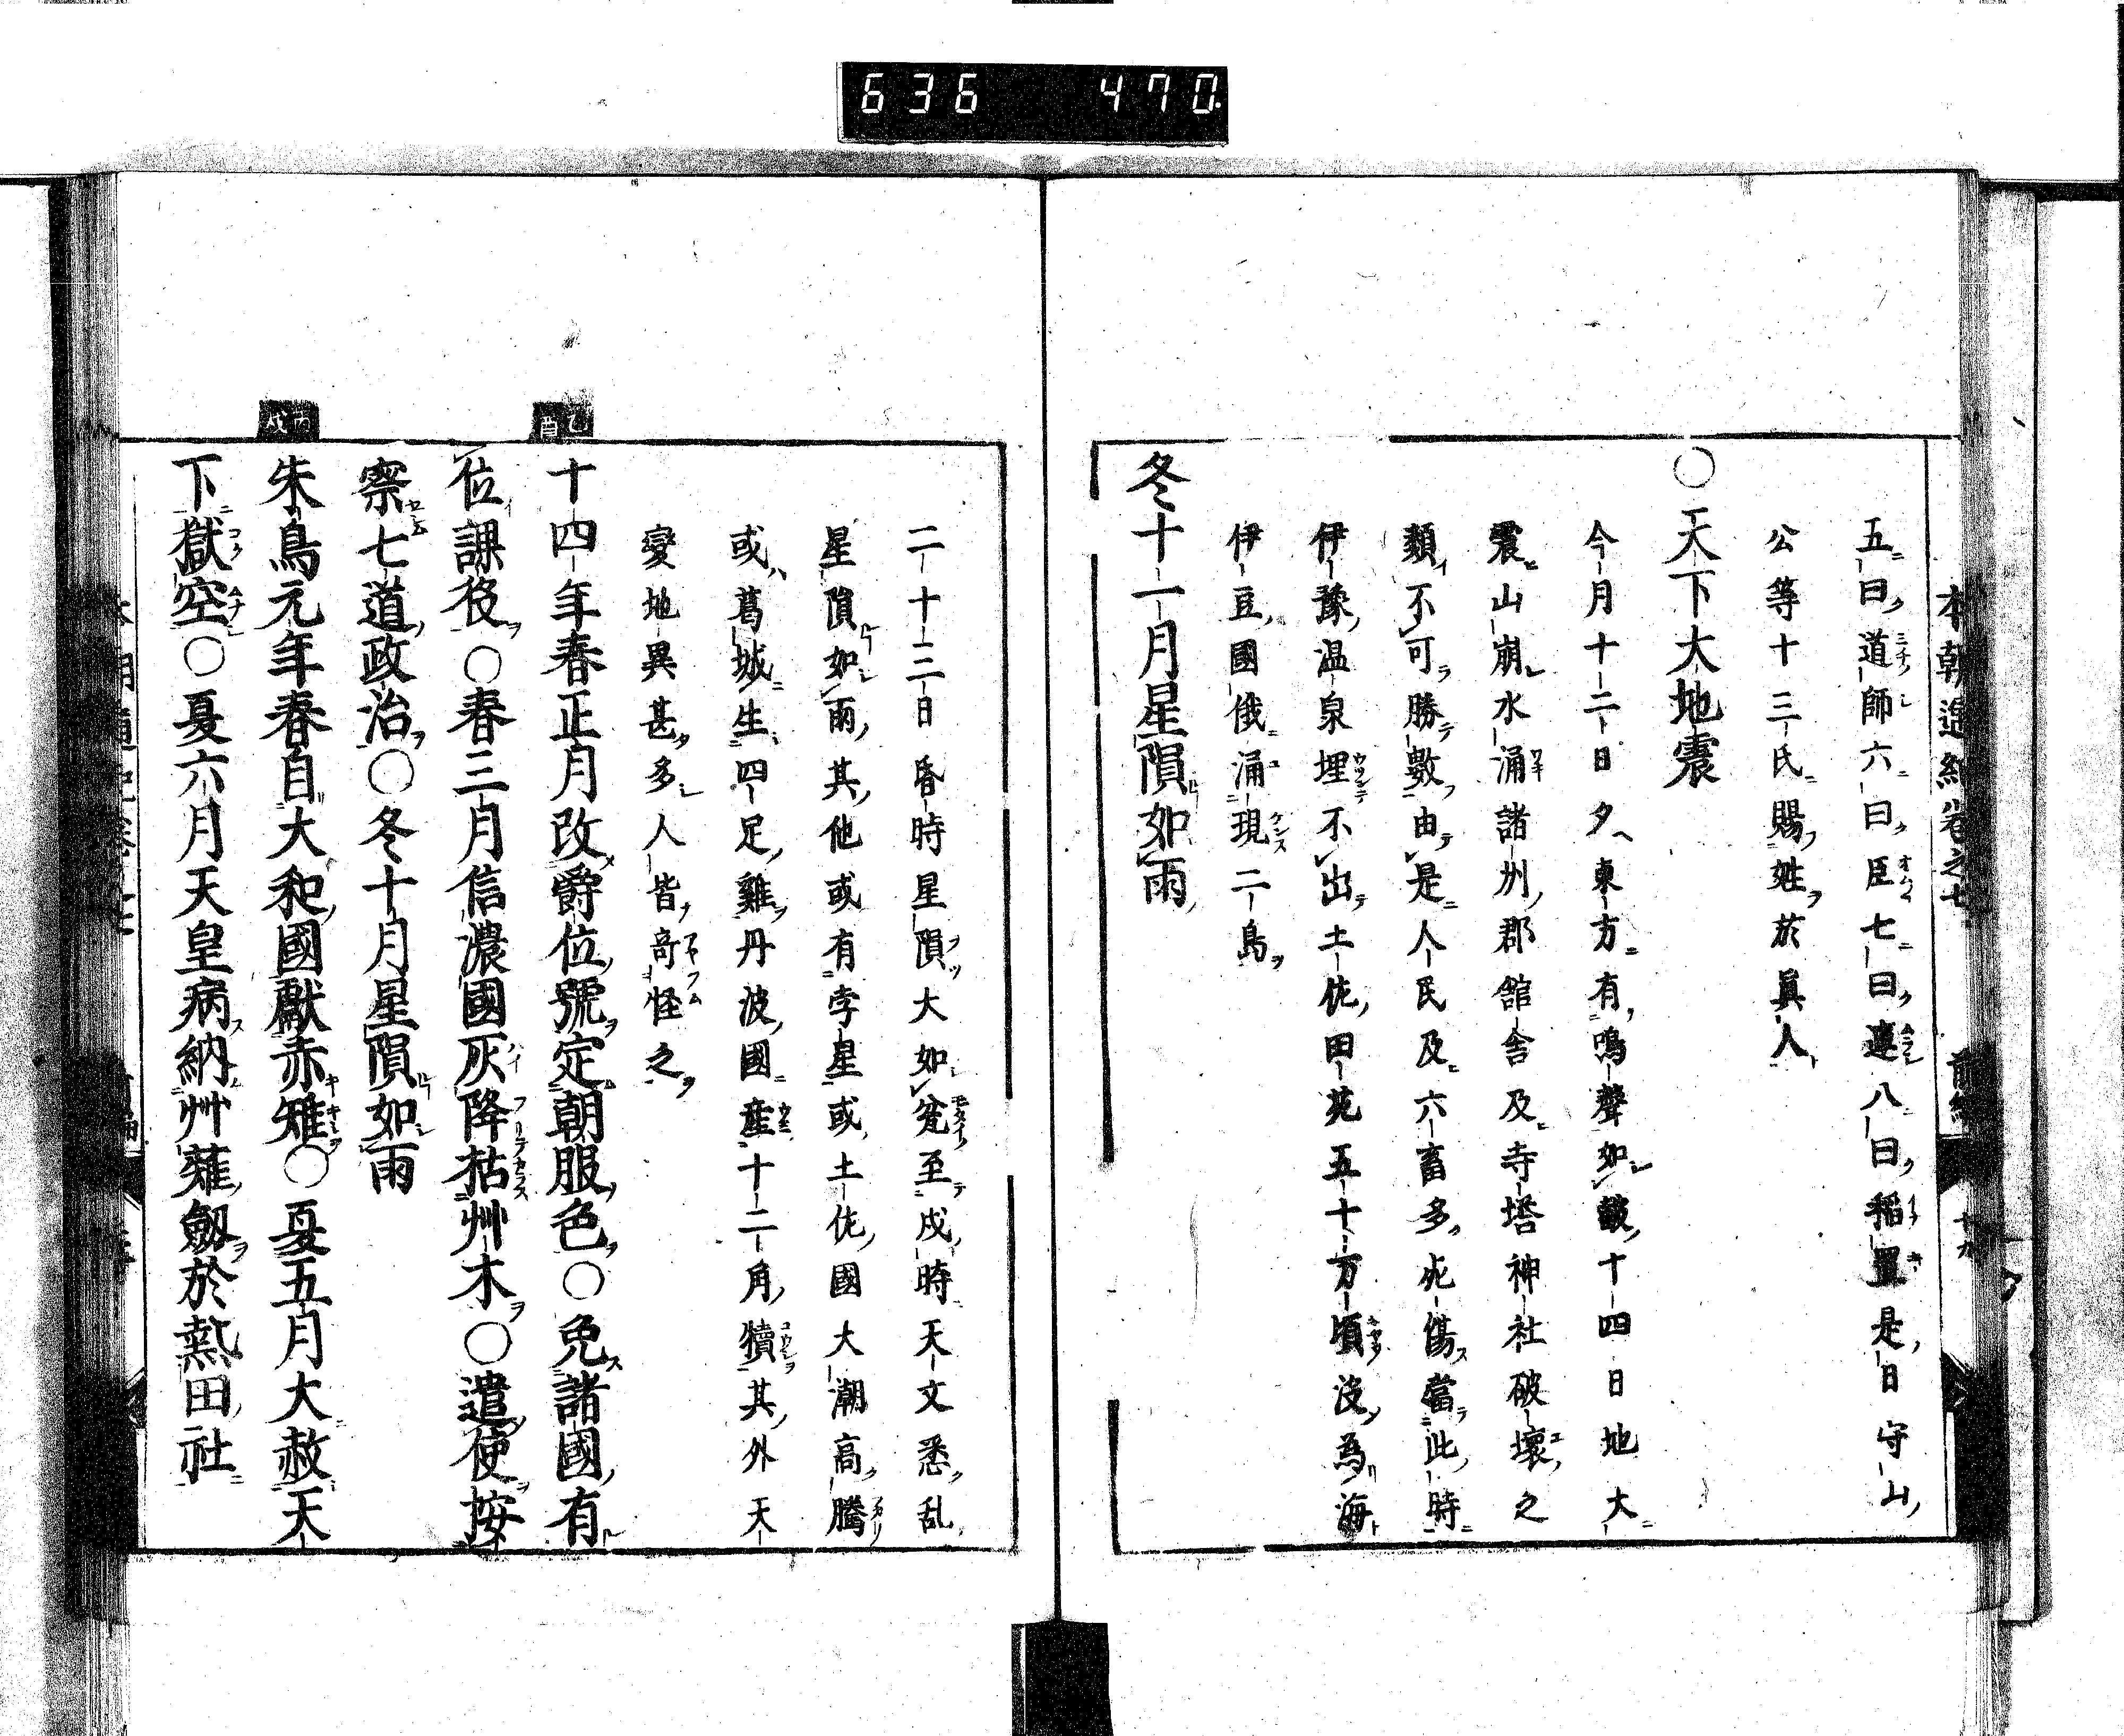 636 470
本朝通紀卷之七 前編 十九
五曰道師六曰臣七曰連八曰稲置是日守山
公等十三氏賜姓於眞人
○天下大地震
今月十二日夕東方有鳴聲如皷十四日地大
震山崩水涌諸州郡舘舎及寺塔神社破壞之
類不可勝數由是人民及六畜多死傷當此時
伊豫温泉埋不出土佐田苑五十万頃没為海
伊豆國俄涌現二島
冬十一月星隕如雨
二十三日昏時星隕大如瓮至戌時天文悉乱
星隕如雨其他或有孛星或土佐國大潮高騰
或葛城生四足雞丹波國産十二角犢其外天
變地異甚多人皆奇怪之
乙酉
十四年春正月改爵位號定朝服色○免諸國有
位課役○春三月信濃國灰降枯艸木○遣使按
察七道政治○冬十月星隕如雨
丙戌
朱鳥元年春自大和國獻赤雉○夏五月大赦天
下獄空○夏六月天皇病納艸薙劔於熱田社